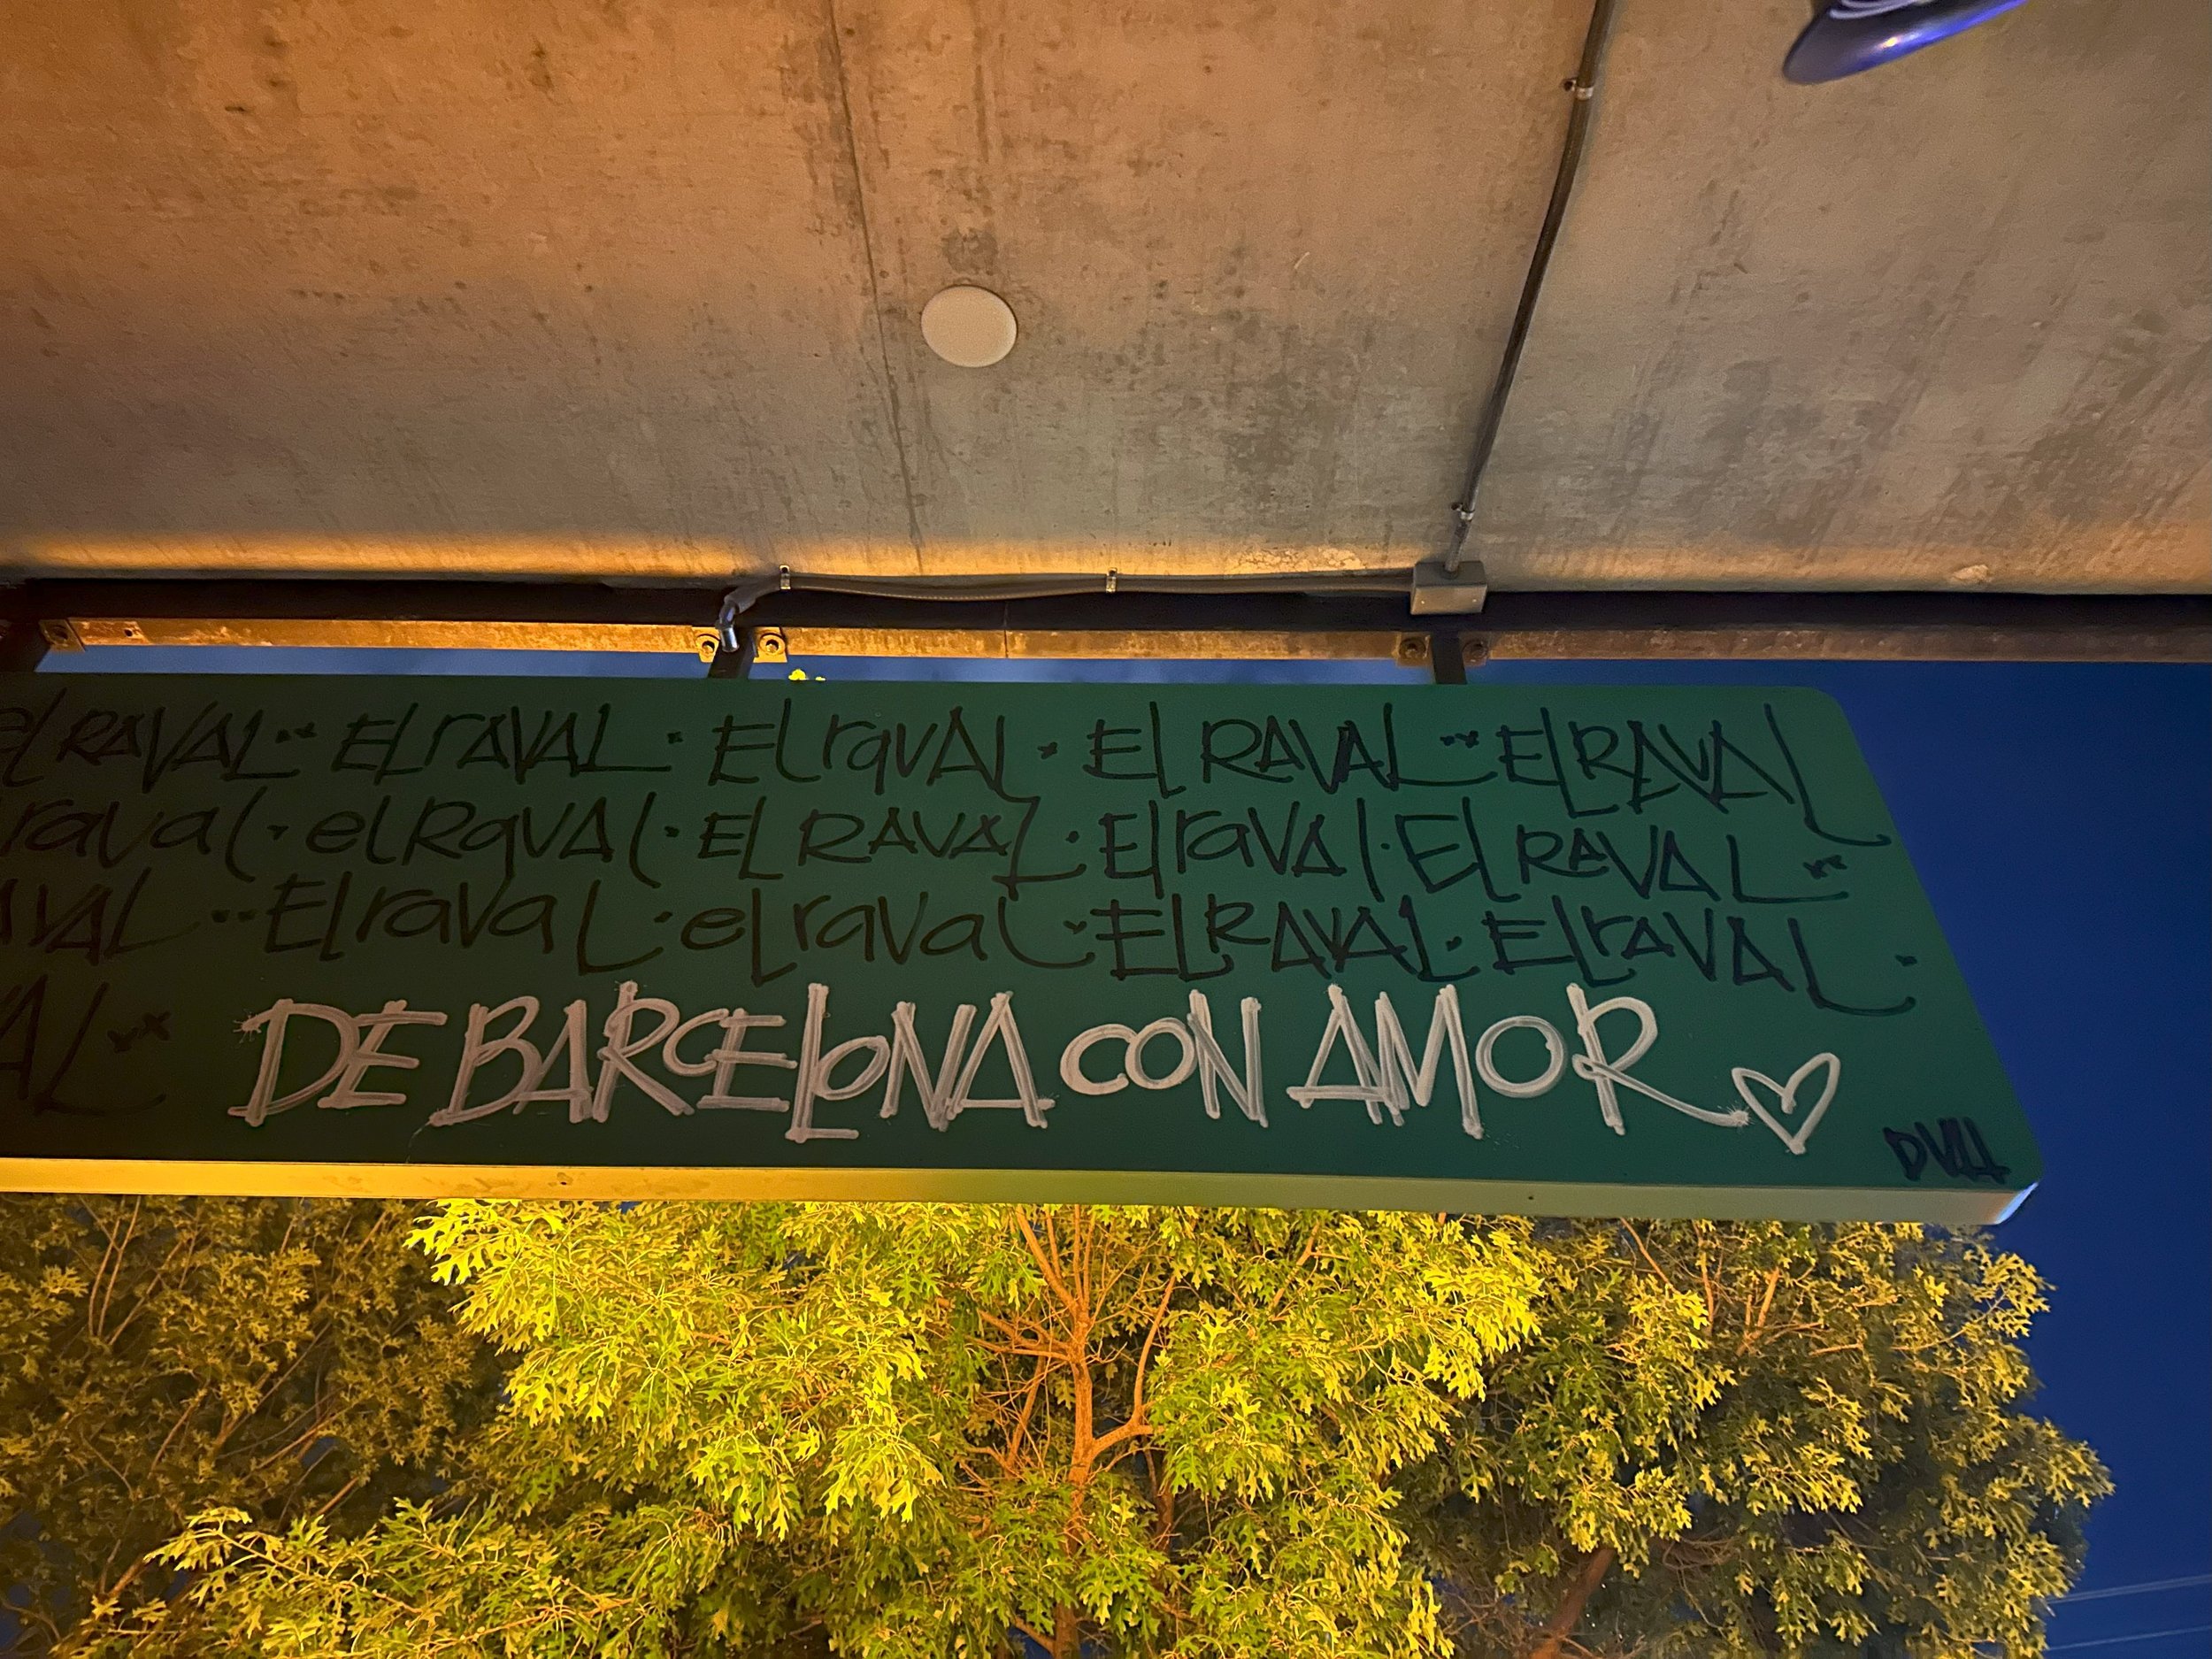 eL RAVAL ELrAVAL El rqvAL El RAVAL ELRAVAL
raval elRqvAl EL RAVAL ElravAl El RAVAL
AVAL Elraval eLraval ELRAVAL ELrAVAL
VAL
DE BARCELONA CON AMOR